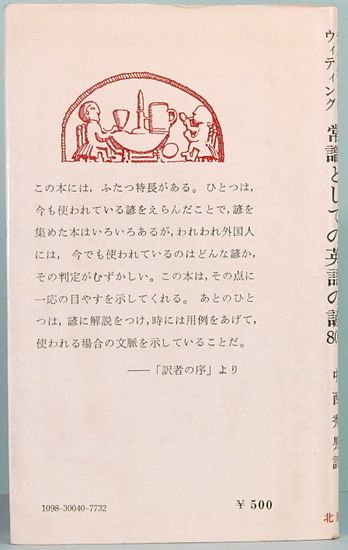 この本には，ふたつ特長がある。ひとつは，
今も使われている諺をえらんだことで，諺を
集めた本はいろいろあるが，われわれ外国人
には，今でも使われているのはどんな諺か，
その判定がむずかしい。この本は，その点に
一応の目やすを示してくれる。あとのひと
つは，諺に解説をつけ，時には用例をあげて，
使われる場合の文脈を示していることだ。
——「訳者の序」より
1098-30040-7732
￥500
ウィティング
常識としての英語の諺
中西秀男訳
北